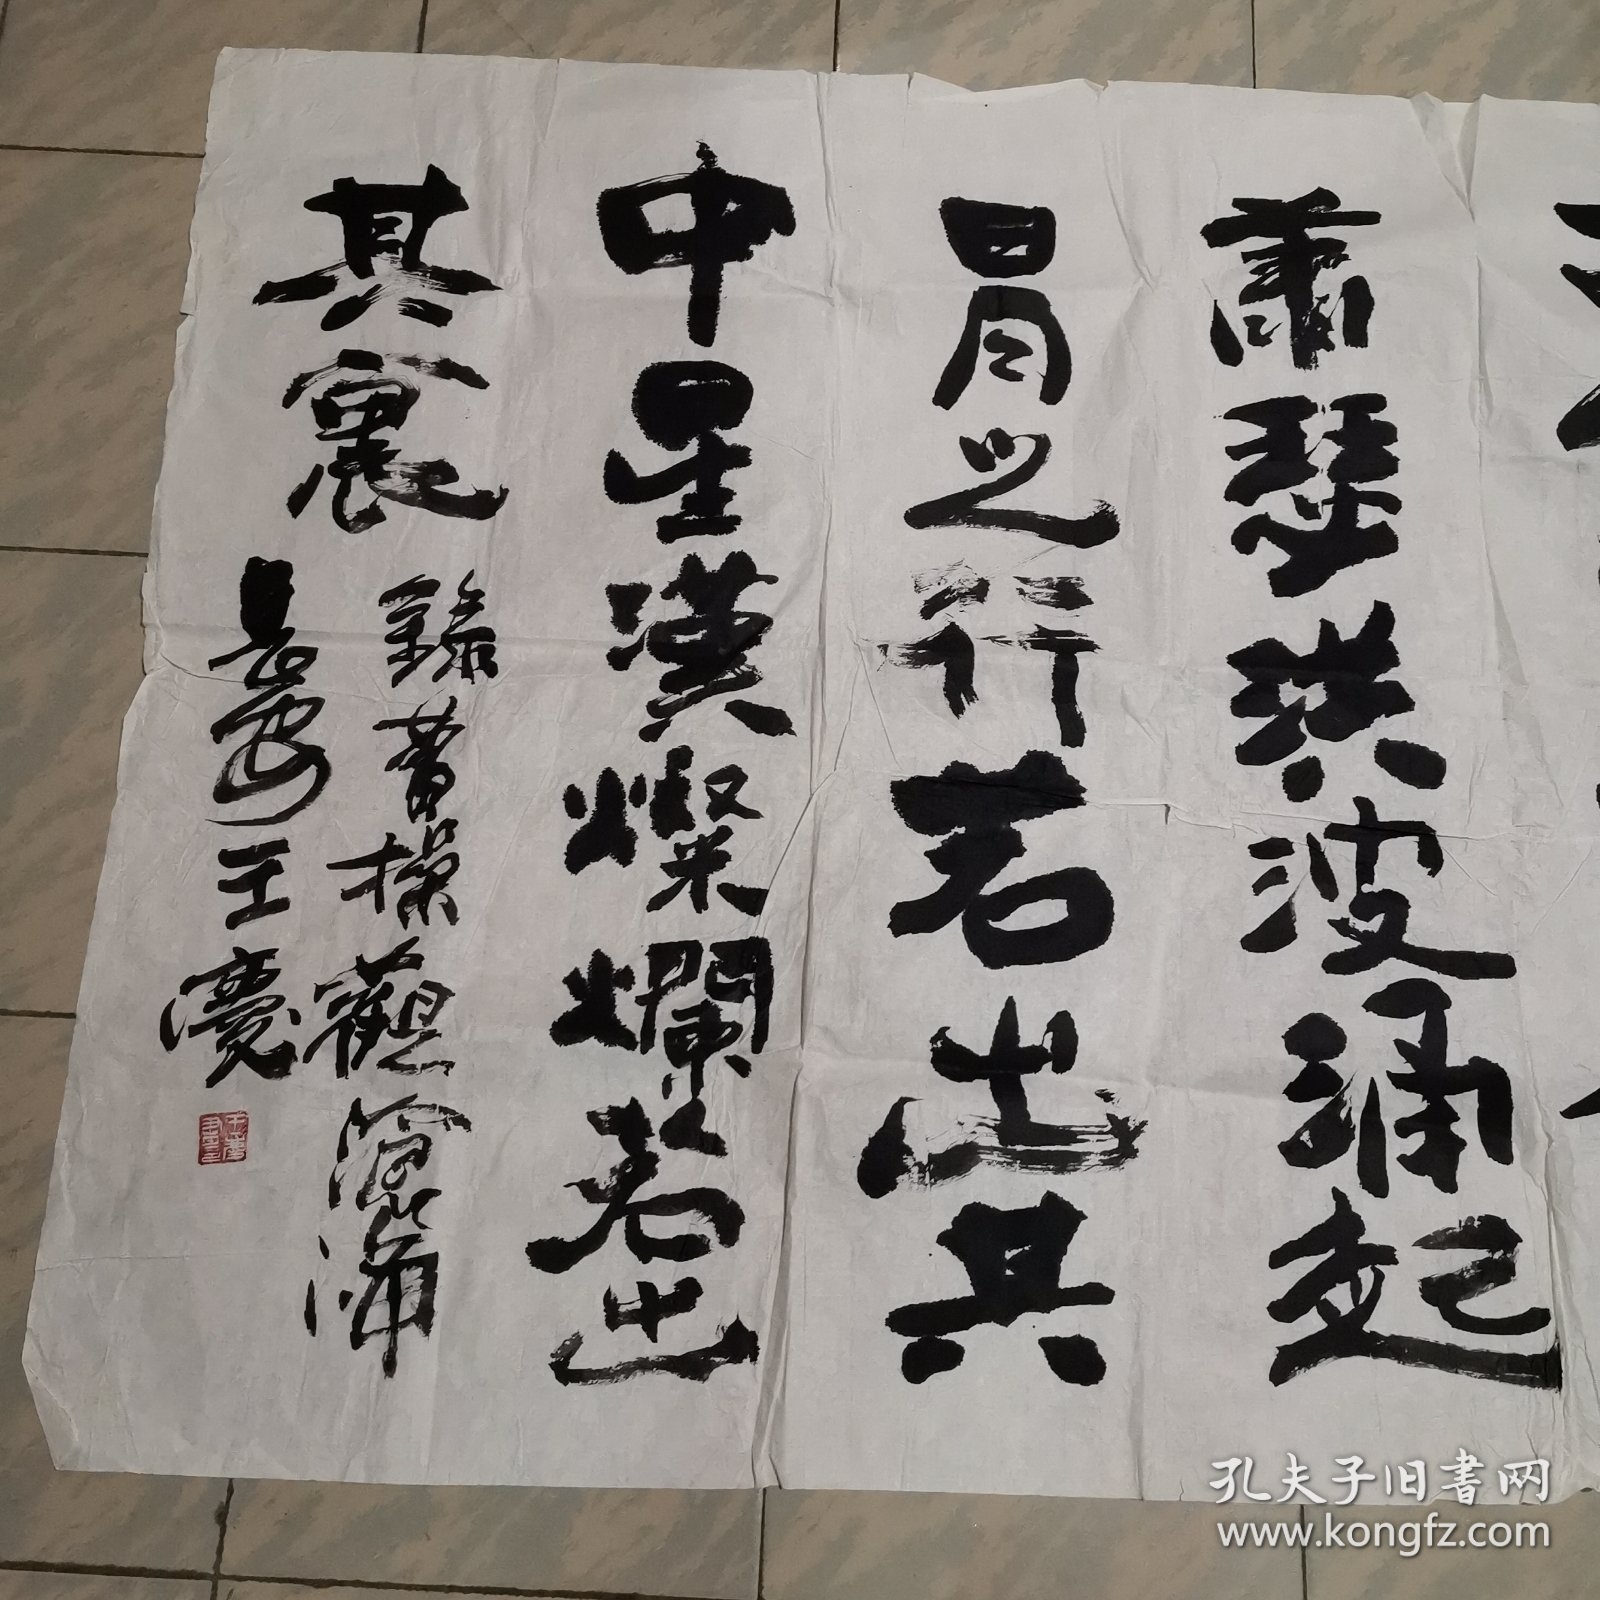 蕭瑟洪波涌起
日月之行若出其
中星漢燦爛若出
其裏
録曹操觀滄海
長安王慶
孔夫子旧书网
www.kongfz.com